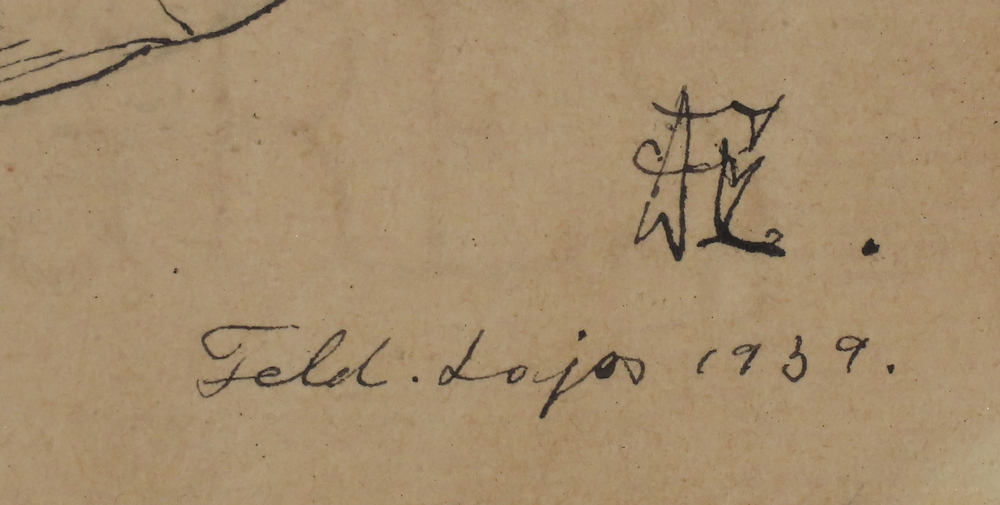 Feld. Lajos 1939.